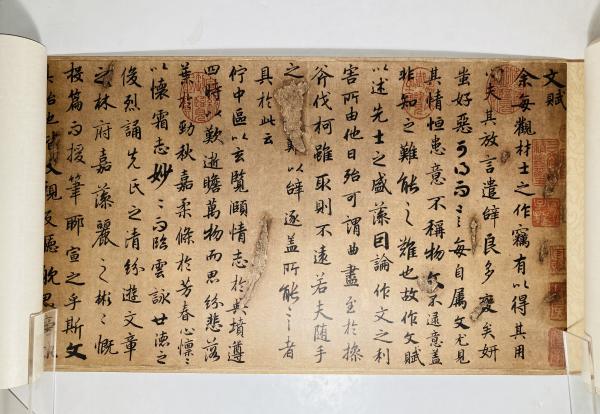 文賦
余每觀材士之作竊有以得其用
心夫其放言遣辭良多變矣妍
蚩好惡可得而言每自属文尤見
其情恒患意不稱物文不逮意盖
非知之難能之難也故作文賦
以述先士之盛藻因論作文之利
害所由他日殆可謂曲盡至於操
斧伐柯雖取則不遠若夫随手
之難以辞逐盖所能言之者
具於此云
佇中區以玄覽頤情志於典墳遵
四時以歎逝瞻萬物而思紛悲落
葉於勁秋嘉柔條於芳春心懍〻
以懷霜志妙〻而臨雲詠世德之
俊烈誦先民之清紛遊文章
之林府嘉藻麗之彬〻慨
投篇而援筆聊宣之乎斯文
其始也皆収視反聽耽思